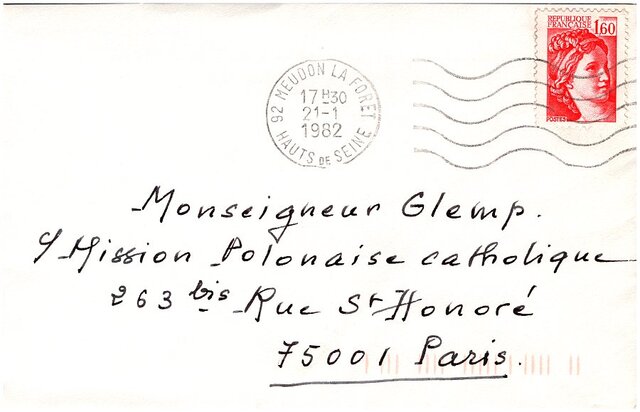 RÉPUBLIQUE
FRANÇAISE
1,60
POSTES
92 MEUDON LA FORET
17H30
21-1
1982
HAUTS DE SEINE
Monseigneur Glemp.
c/ Mission Polonaise catholique
263 bis Rue St Honoré
75001 Paris.